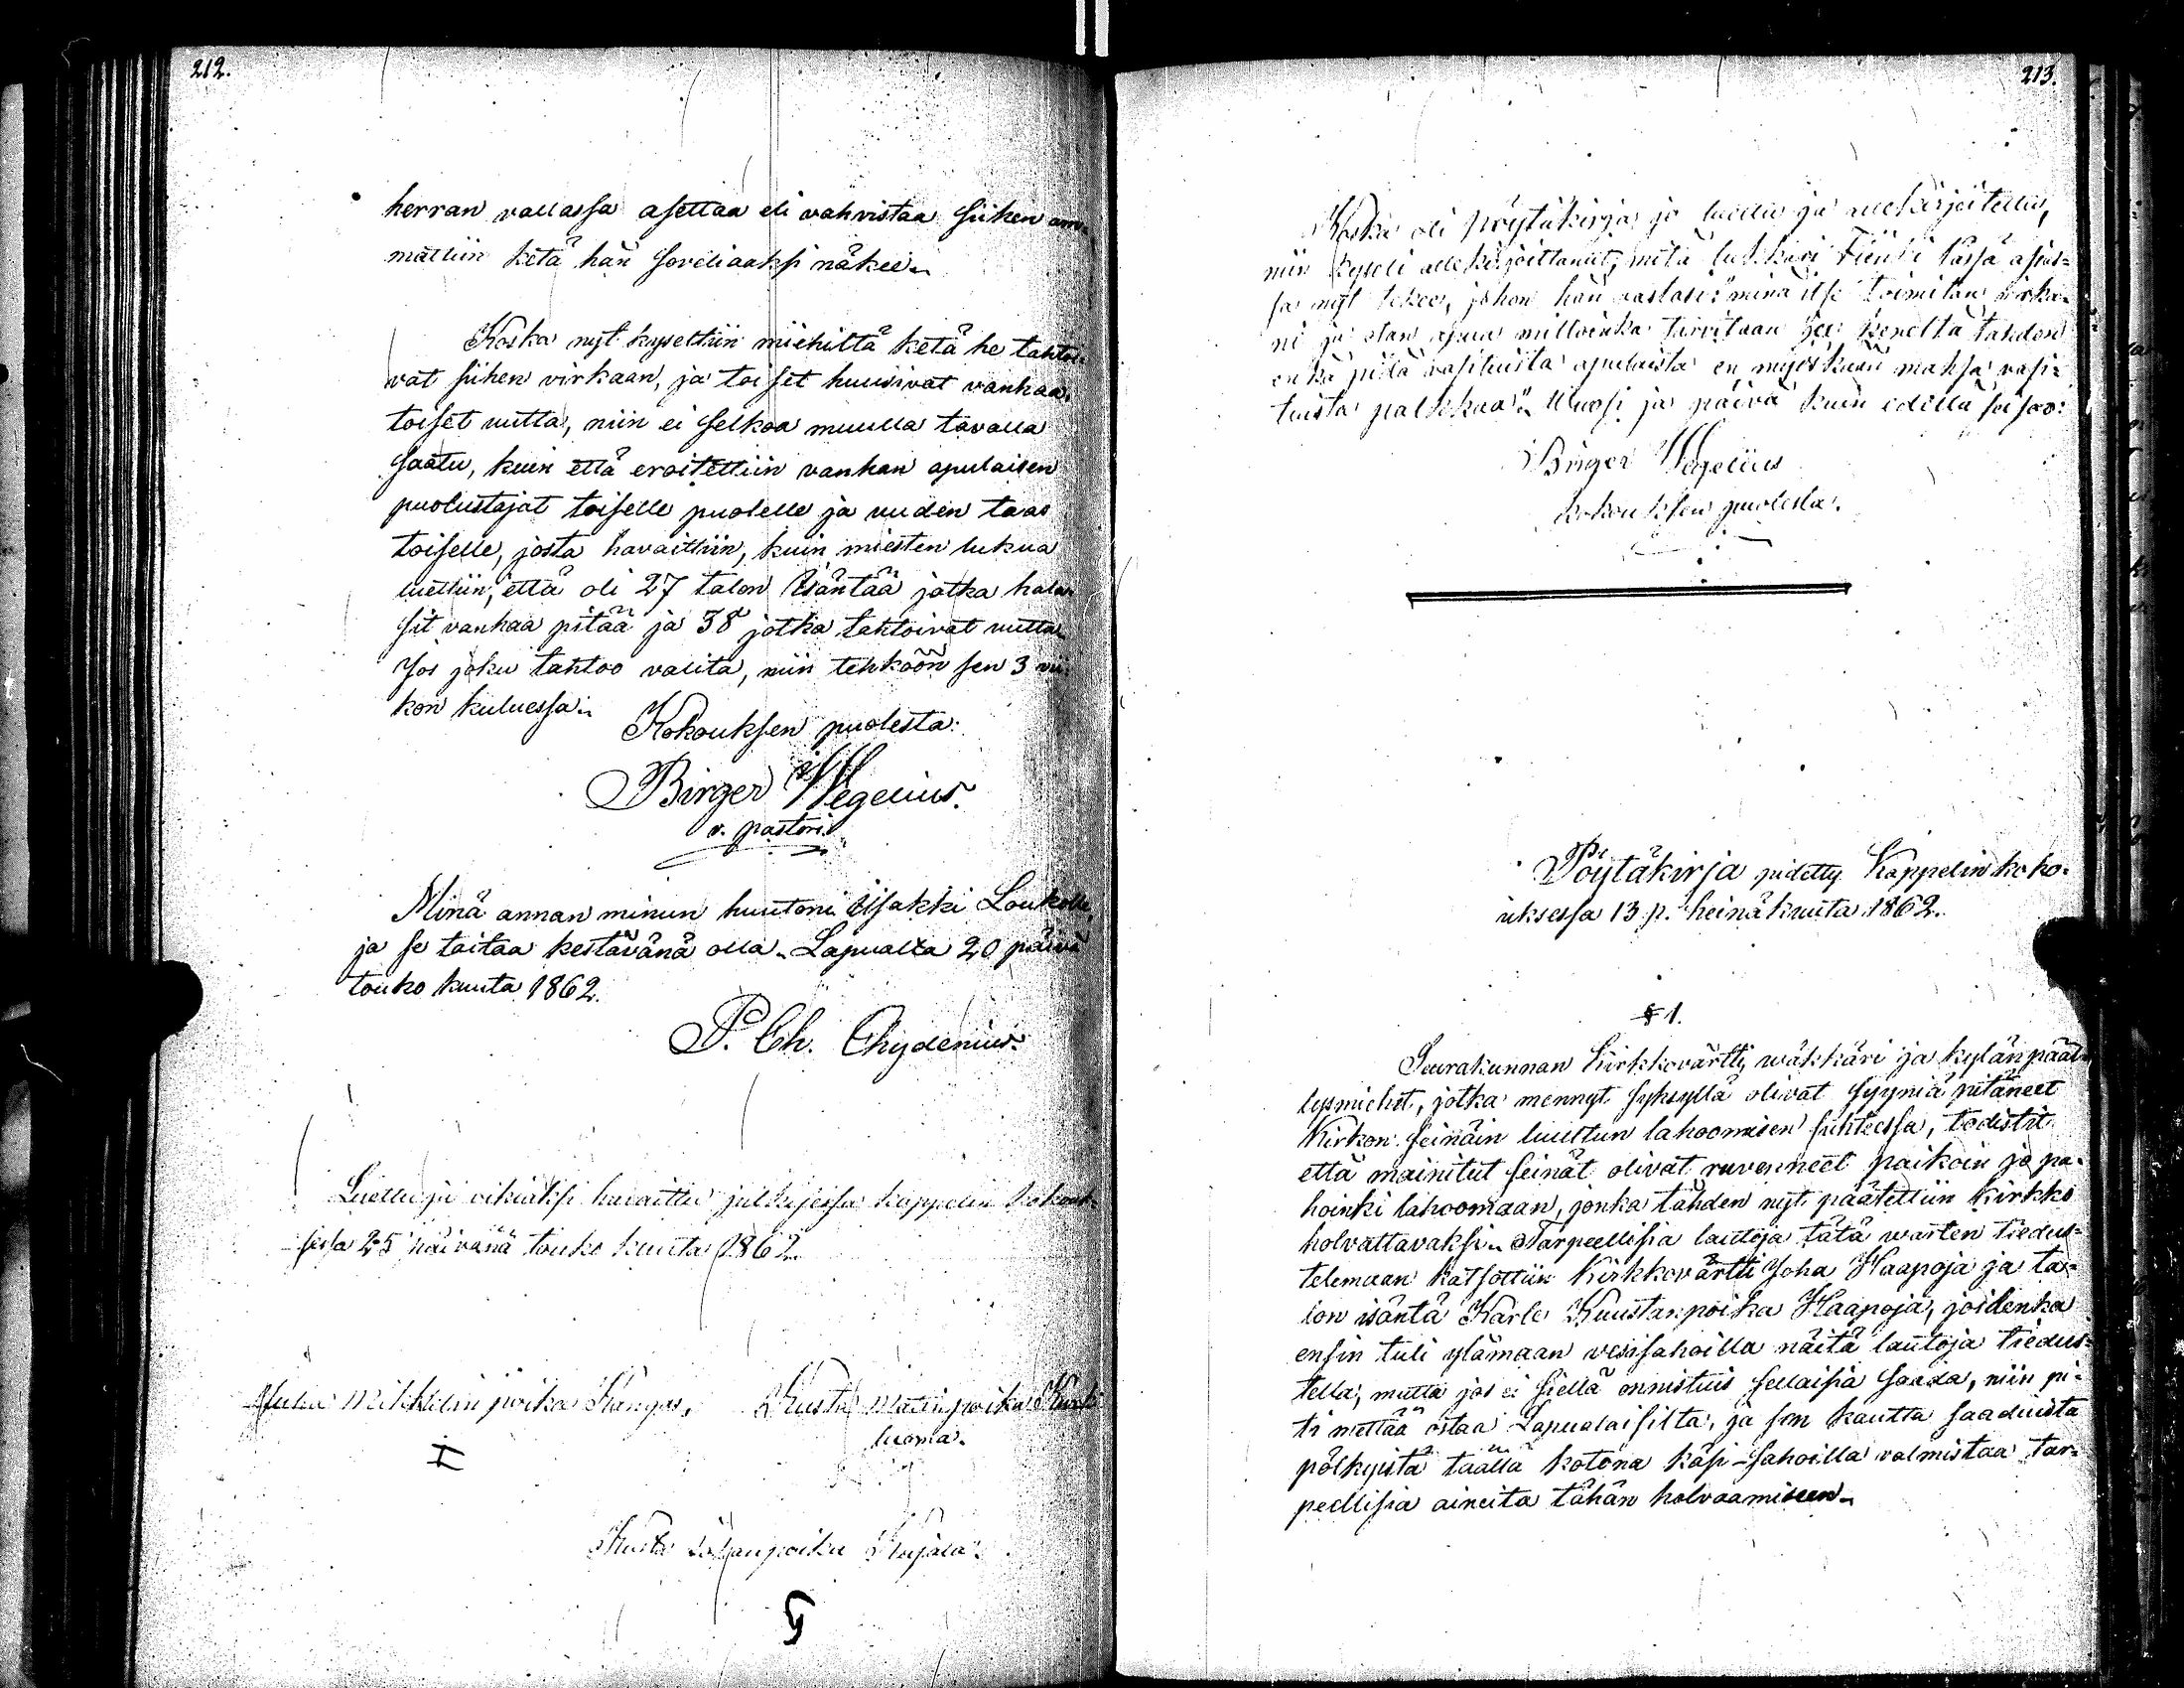 212.
herran vallassa asettaa eli vahvistaa siihen am-
mattiin ketä hän soveliaaksi näkee.
Koska nyt kyseltiin miehiltä ketä he tahtoi-
vat siihen virkaan, ja toiset huusivat vanhaa,
toiset uutta, niin ei selkoa muulla tavalla
saatu, kuin että eroitettiin vanhan apulaisen
puolustajat toiselle puolelle ja uuden taas
toiselle, josta havaittiin, kuin miesten lukua
luettiin, että oli 27 talon isäntää jotka halu-
sit vanhaa pitää ja 38 jotka tahtoivat uutta.
Jos joku tahtoo valita, niin tehköön sen 3 vii-
kon kuluessa.
Kokouksen puolesta:
Birger Wegelius.
v. pastori.
Minä annan minun huutoni Iisakki Loukolle,
ja se taitaa kestävänä olla. Lapualta 20 päivä
touko kuuta 1862.
P. Ch. Chydenius.
Luettu ja oikiaksi havaittu julkisessa kappelin kokouk-
sessa 25 päivänä touko kuuta 1862.
Juha Mikkelin poika Kangas, Kusta Matinpoika
luoma.
Kusta poika
213.
Koska oli Pöytäkirja jo luettu ja allekirjoitettu,
niin kyseli allekirjoittanut, mitä lukkari tässä asias-
sa nyt tekee, johon hän vastasi: "minä itse toimitan virka-
ni ja otan apua milloinka tarvitaan keneltä tahdon
enkä pidä vasituista apulaista en myöskään maksa vasi-
tuista palkkaa". Vuosi ja päivä kuin edellä seisoo:
Birger Wegelius
kokouksen puolesta.
Pöytäkirja pidetty Kappelin koko-
uksessa 13 p. heinäkuuta 1862.
§ 1.
Seurakunnan Kirkkovärtti, wäkkäri ja kylänpääl-
lysmiehet, jotka mennyt syksyllä olivat syyniä pitäneet
Kirkon seinäin luultun lahoomisen suhteessa, todistit
että mainitut seinät olivat ruvenneet paikoin jo pa-
hoinki lahoomaan, jonka tähden nyt päätettiin kirkko
holvattavaksi. Tarpeellisia lautoja tätä warten tiedus-
telemaan katsottiin Kirkkovärtti Joha Haapoja ja ta-
lon isäntä Karle Kuustanpoika Haapoja, joidenka
ensin tuli ylämaan vesisahoilla näitä lautoja tiedus-
tella, mutta jos ei siellä onnistuis sellaisia saada, niin pi-
ti mettää ostaa Lapualaisilta, ja sen kautta saaduista
pölkyistä täällä kotona käsi-sahoilla valmistaa tar-
peellisia aineita tähän holvaamiseen.